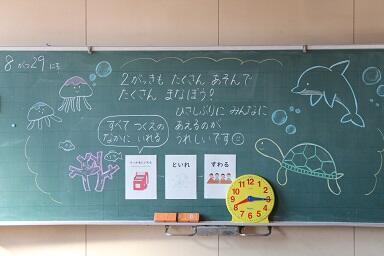 8がつ29にち
2がっきも たくさん あそんで
たくさん まなぼう!
ひさしぶりに みんなに
あえるのが
うれしいです
すべて つくえの
なかに いれる
といれ
すわる
12
1
2
3
4
5
6
7
8
9
10
11